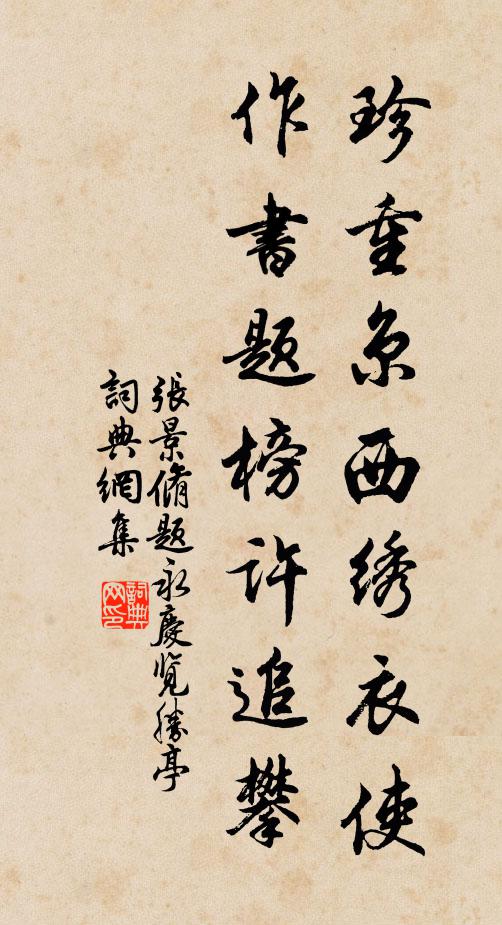 珍重京西绣衣使
作書题榜许追攀
張景脩题永慶览勝亭
詞典網集
詞典网印